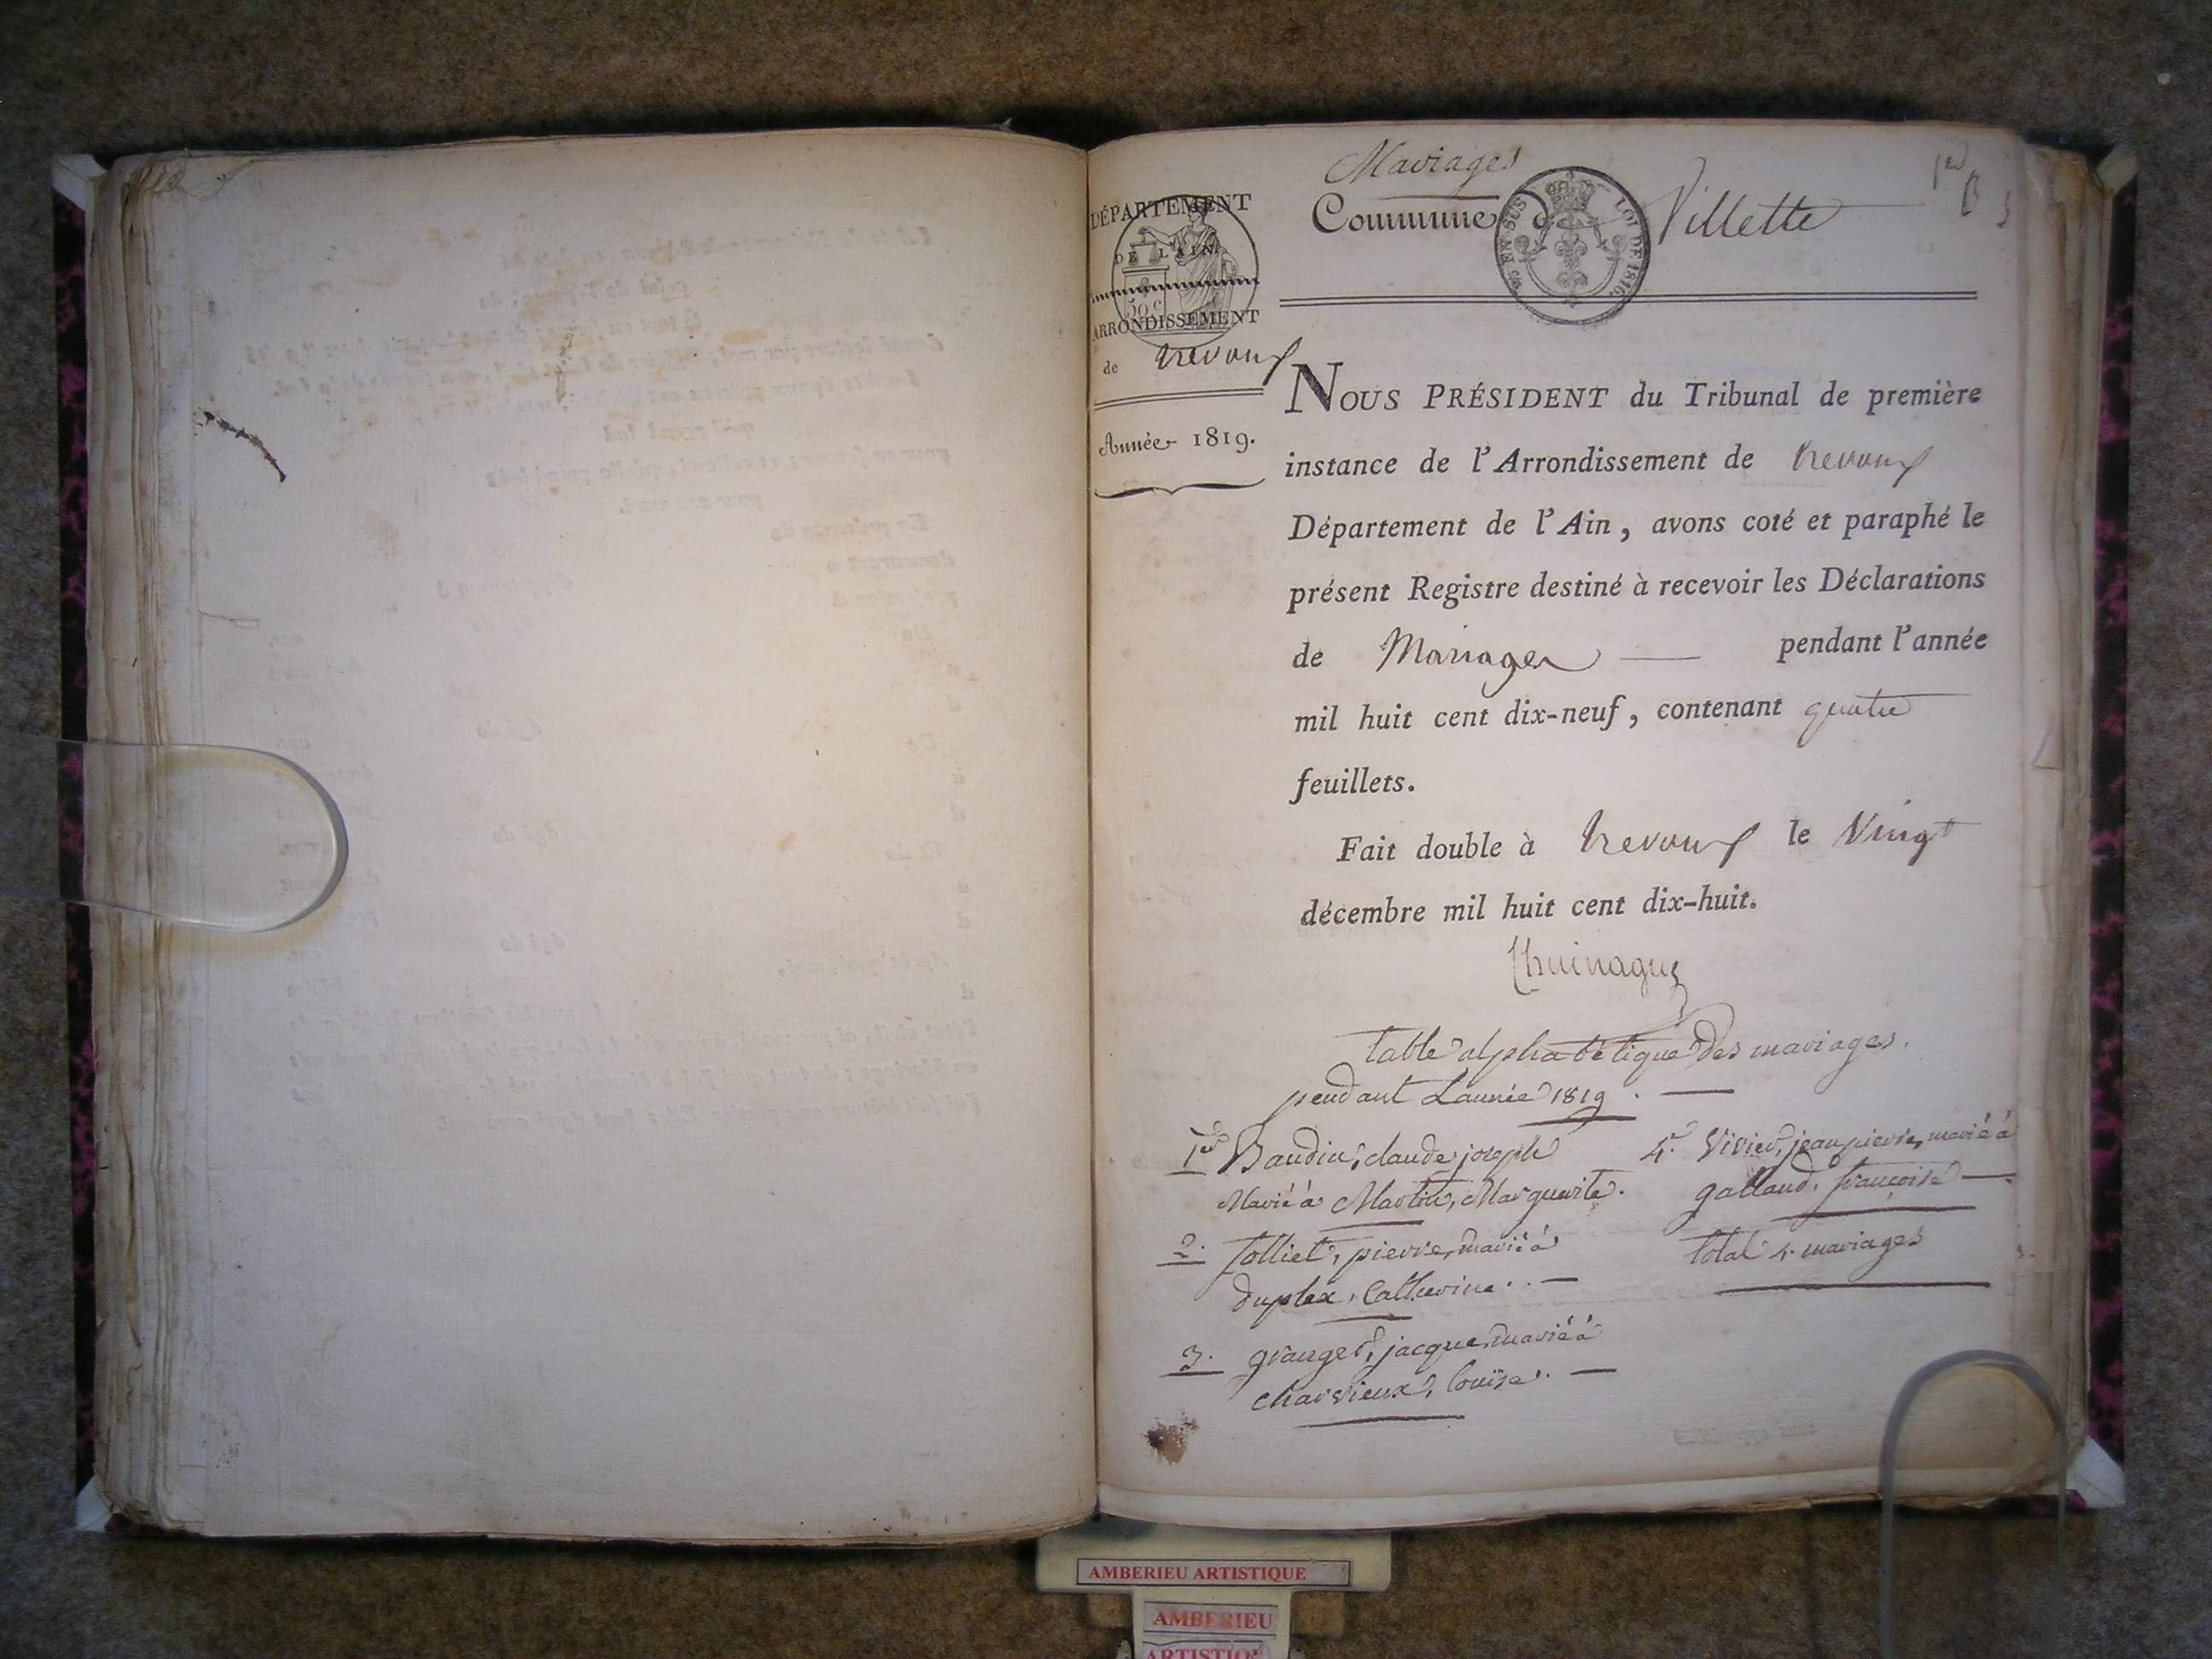 Mariages
Commune de Villette
1er
B
DÉPARTEMENT
DE L'AIN.
50 c
ARRONDISSEMENT
de trevoux
Année 1819.
EN SUS
LOI DE 1816.
NOUS PRÉSIDENT du Tribunal de première
instance de l'Arrondissement de trevoux
Département de l'Ain, avons coté et paraphé le
présent Registre destiné à recevoir les Déclarations
de Mariages — pendant l'année
mil huit cent dix-neuf, contenant quatre
feuillets.
Fait double à trevoux le Vingt
décembre mil huit cent dix-huit.
table alphabétique des mariages.
pendant L'année 1819. —
1er Baudin, claude joseph
Marié à Martin, Marguerite.
2. Jolliet, pierre, marié à
duplex, Catherine. . —
3. granger, jacque, marié à
charvieux, Louïse. —
4. Vivier, jean pierre, marié à
galland, françoise —.
total 4. mariages
AMBERIEU ARTISTIQUE
AMBERIEU
ARTISTIQUE